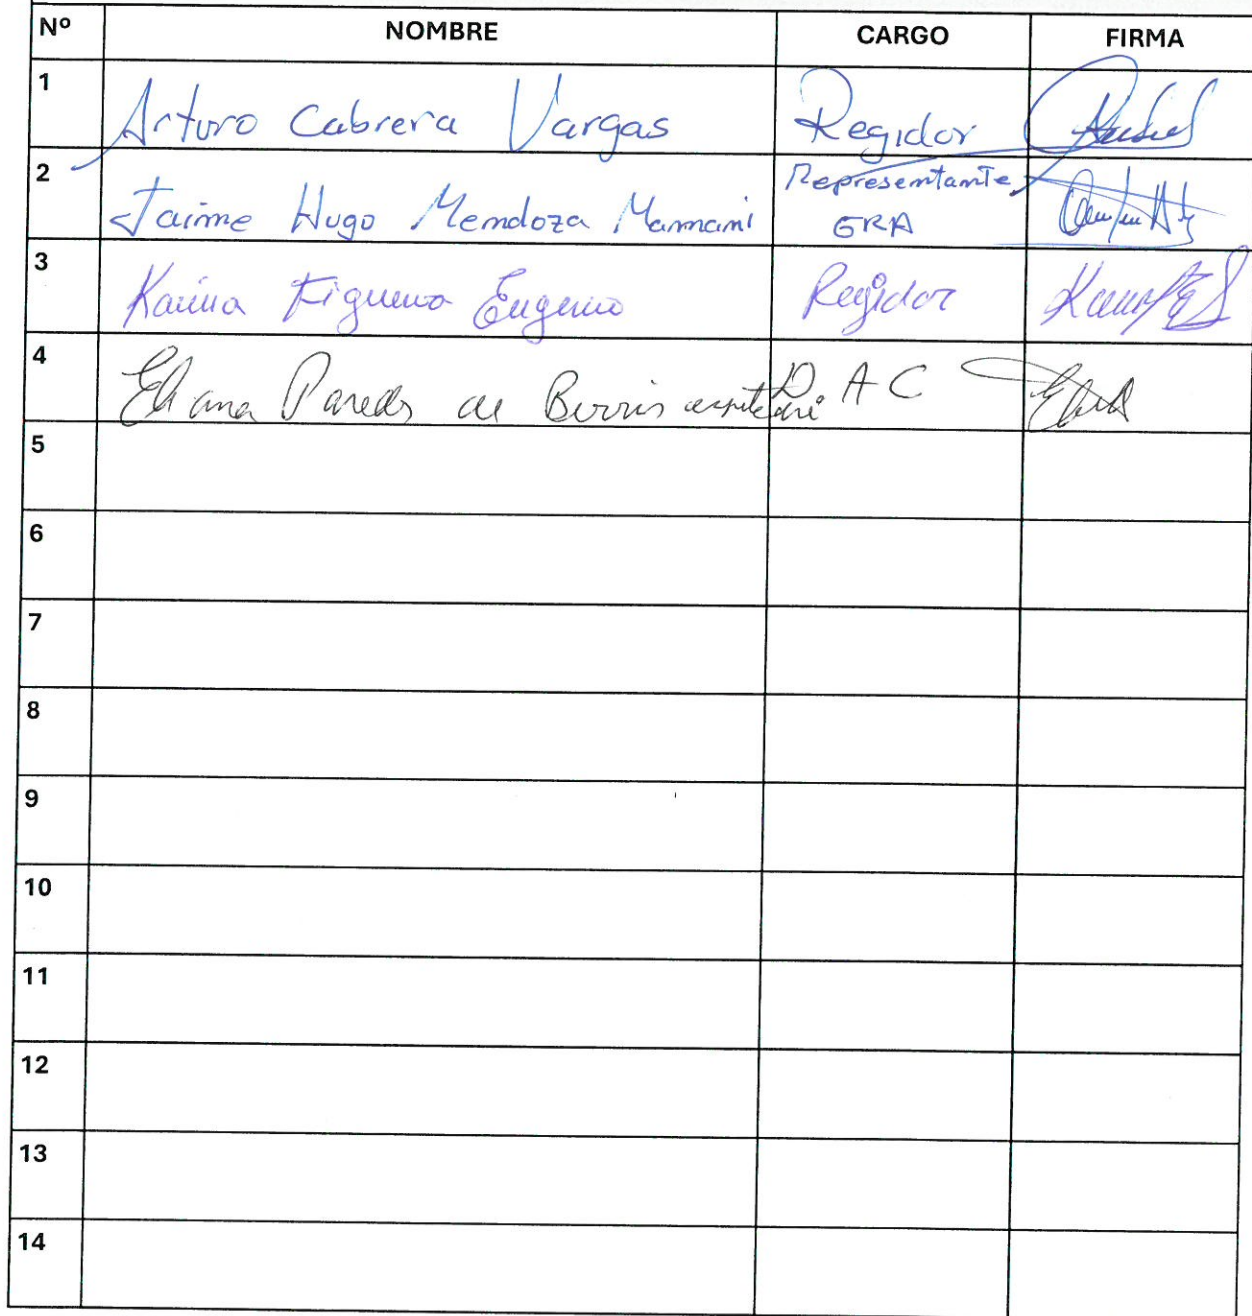 Nº NOMBRE CARGO FIRMA
1 Arturo Cabrera Vargas Regidor
2 Jaime Hugo Mendoza Mamani Representante
GRA
3 Karina Figueroa Eugenio Regidor
4 Eliana Paredes de D A C
5
6
7
8
9
10
11
12
13
14